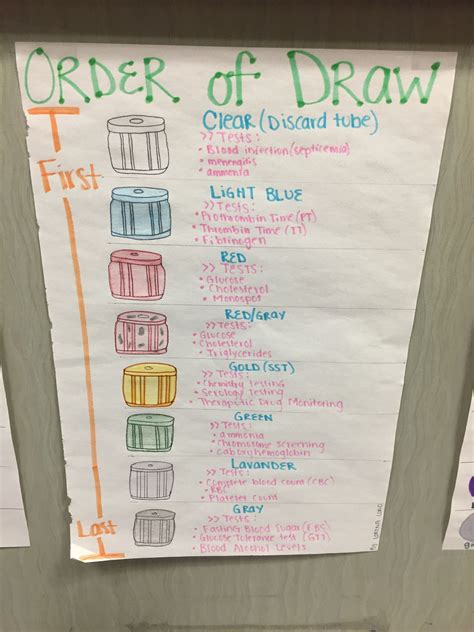 ORDER OF DRAW
First
CLEAR (Discard tube)
>> Tests:
• Blood infection (septicemia)
• menengitis
• ammonia
LIGHT BLUE
>> Tests:
• Prothrombin Time (PT)
• Thrombin Time (TT)
• Fibrinogen
RED
>> Tests:
• Glucose
• Cholesterol
• Monospot
RED/GRAY
>> Tests:
• Glucose
• Cholesterol
• Triglycerides
GOLD (SST)
>> Tests:
• Chemistry Testing
• Serology Testing
• Therapeutic Drug Monitoring
GREEN
>> Tests:
• ammonia
• Chromosome screening
• Carboxyhemoglobin
LAVANDER
>> Tests:
• Complete blood count (CBC)
• RBC
• Platelet count
GRAY
>> Tests:
• Fasting Blood Sugar (FBS)
• Glucose Tolerance test (GTT)
• Blood Alcohol Levels
Last
By